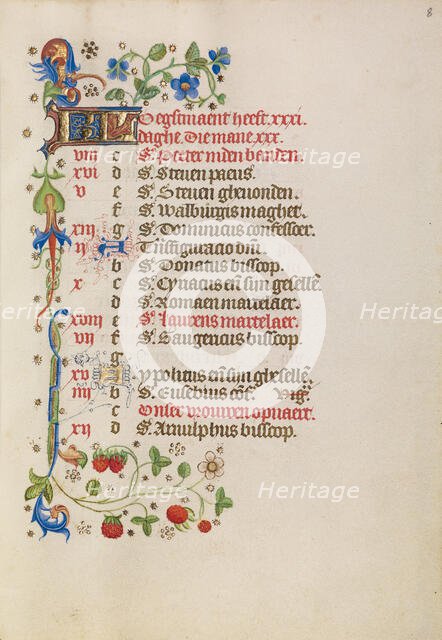 8
Oegstmaent heeft .xxxi.
daghe. Die mane .xxx.
viii c S. Peter inden banden.
xvi d S. Steven paeus.
v e S. Steven ghevonden.
f S. Walburgis maghet.
xiii g S. Dominicus confessoer.
ii A Tnsfiguracio dni.
b S. Donatus bisscop.
x c S. Cyriacus en sijn gesellen.
d S. Romaen martelaer.
xviii e S. Laurens martelaer.
vii f S. Gaugericus bisscop.
g
xv A Ypolitus en sijn ghesellen.
iiii b S. Eusebius cof. Vig.
c Onser vrouwen opvaert.
xii d S. Arnulphus bisscop.
Heritage Heritage Heritage
Heritage Heritage Heritage
Heritage Heritage